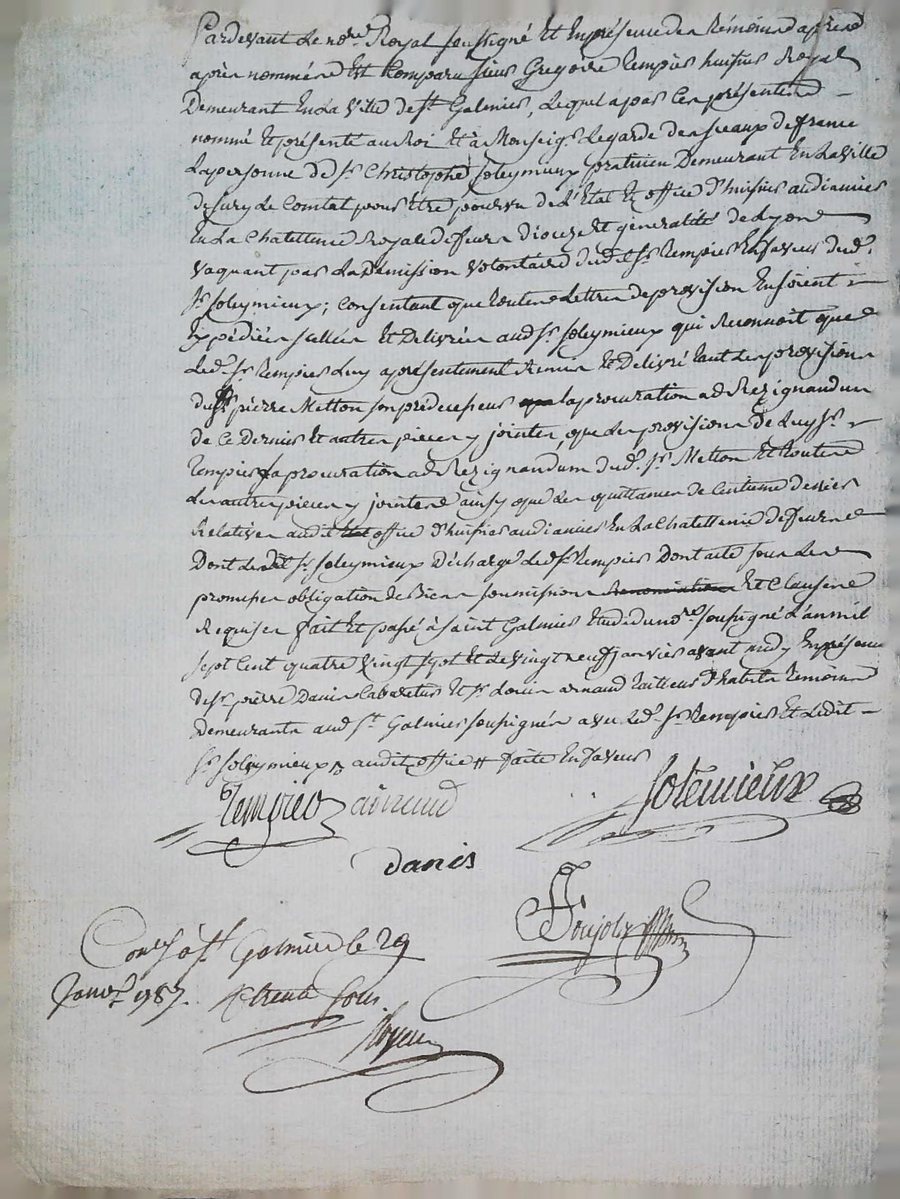 Pardevant Le nore Royal soussigné Et En présence des témoins
après nommés Est Comparu sieur Gregoire Tempier huissier Royal
Demeurant En La ville de st. Galmier, Lequel a par Ces présentes
nommé Et présenté au Roi Et à Monseigr. Le garde des sceaux de france
La personne de sr. Christophe Soleymieux praticien Demeurant En La ville
de sury Le Comtal pour Etre pourvu de L'Etat Et office d'huissier audiancier
En La Chatellenie Royale de feurs dioceze Et generalité de Lyon
vaquant par La Démission volontaire dud. sr. Tempier En faveur dud.
sr. Soleymieux; Consentant que toutes Lettres de provision En soient
Expédiées scellées Et Délivrées aud. sr. Soleymieux qui Reconnoit que
Led. sr. Tempier Luy a présentement Remis Et Délivré tant Les provisions
du sr. pierre Metton son prédecesseur la procuration ad Rezignandum
de Ce Dernier Et autres pieces y jointes, que Les provisions de Luy sr.
Tempier la procuration ad Rezignandum dud. sr. Metton Et toutes
Les autres pieces y jointes ainsy que Les quittances de Centieme denier
Relatives audit office d'huissier audiancier En La Chatellenie de feurs
Dont Ledit sr. Soleymieux Décharge Led. sr. Tempier Dont acte sous Les
promesses obligation de Biens soumissions Et Clauses
Requises fait Et passé à Saint Galmier Etude du nore. soussigné L'an mil
sept Cent quatre vingt sept Et Le vingt neuf janvier avant midy En présence
de sr. pierre Danis Cabaretier Et sr. Louis arnaud tailleur d'habits témoins
Demeurants aud. st. Galmier soussignés avec Led. sr. Tempier Et Ledit
sr. Soleymieux audit office # faite En faveur
Tempier arnaud Solemieux
danis
Goujola
Conlé à st. Galmier le 29
Janvr. 1787. trente sous